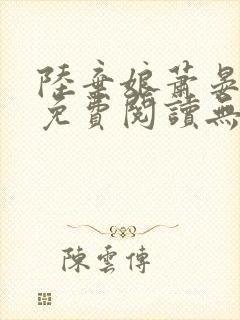 陸棄娘蕭晏
免費閱讀無
陳雲傳